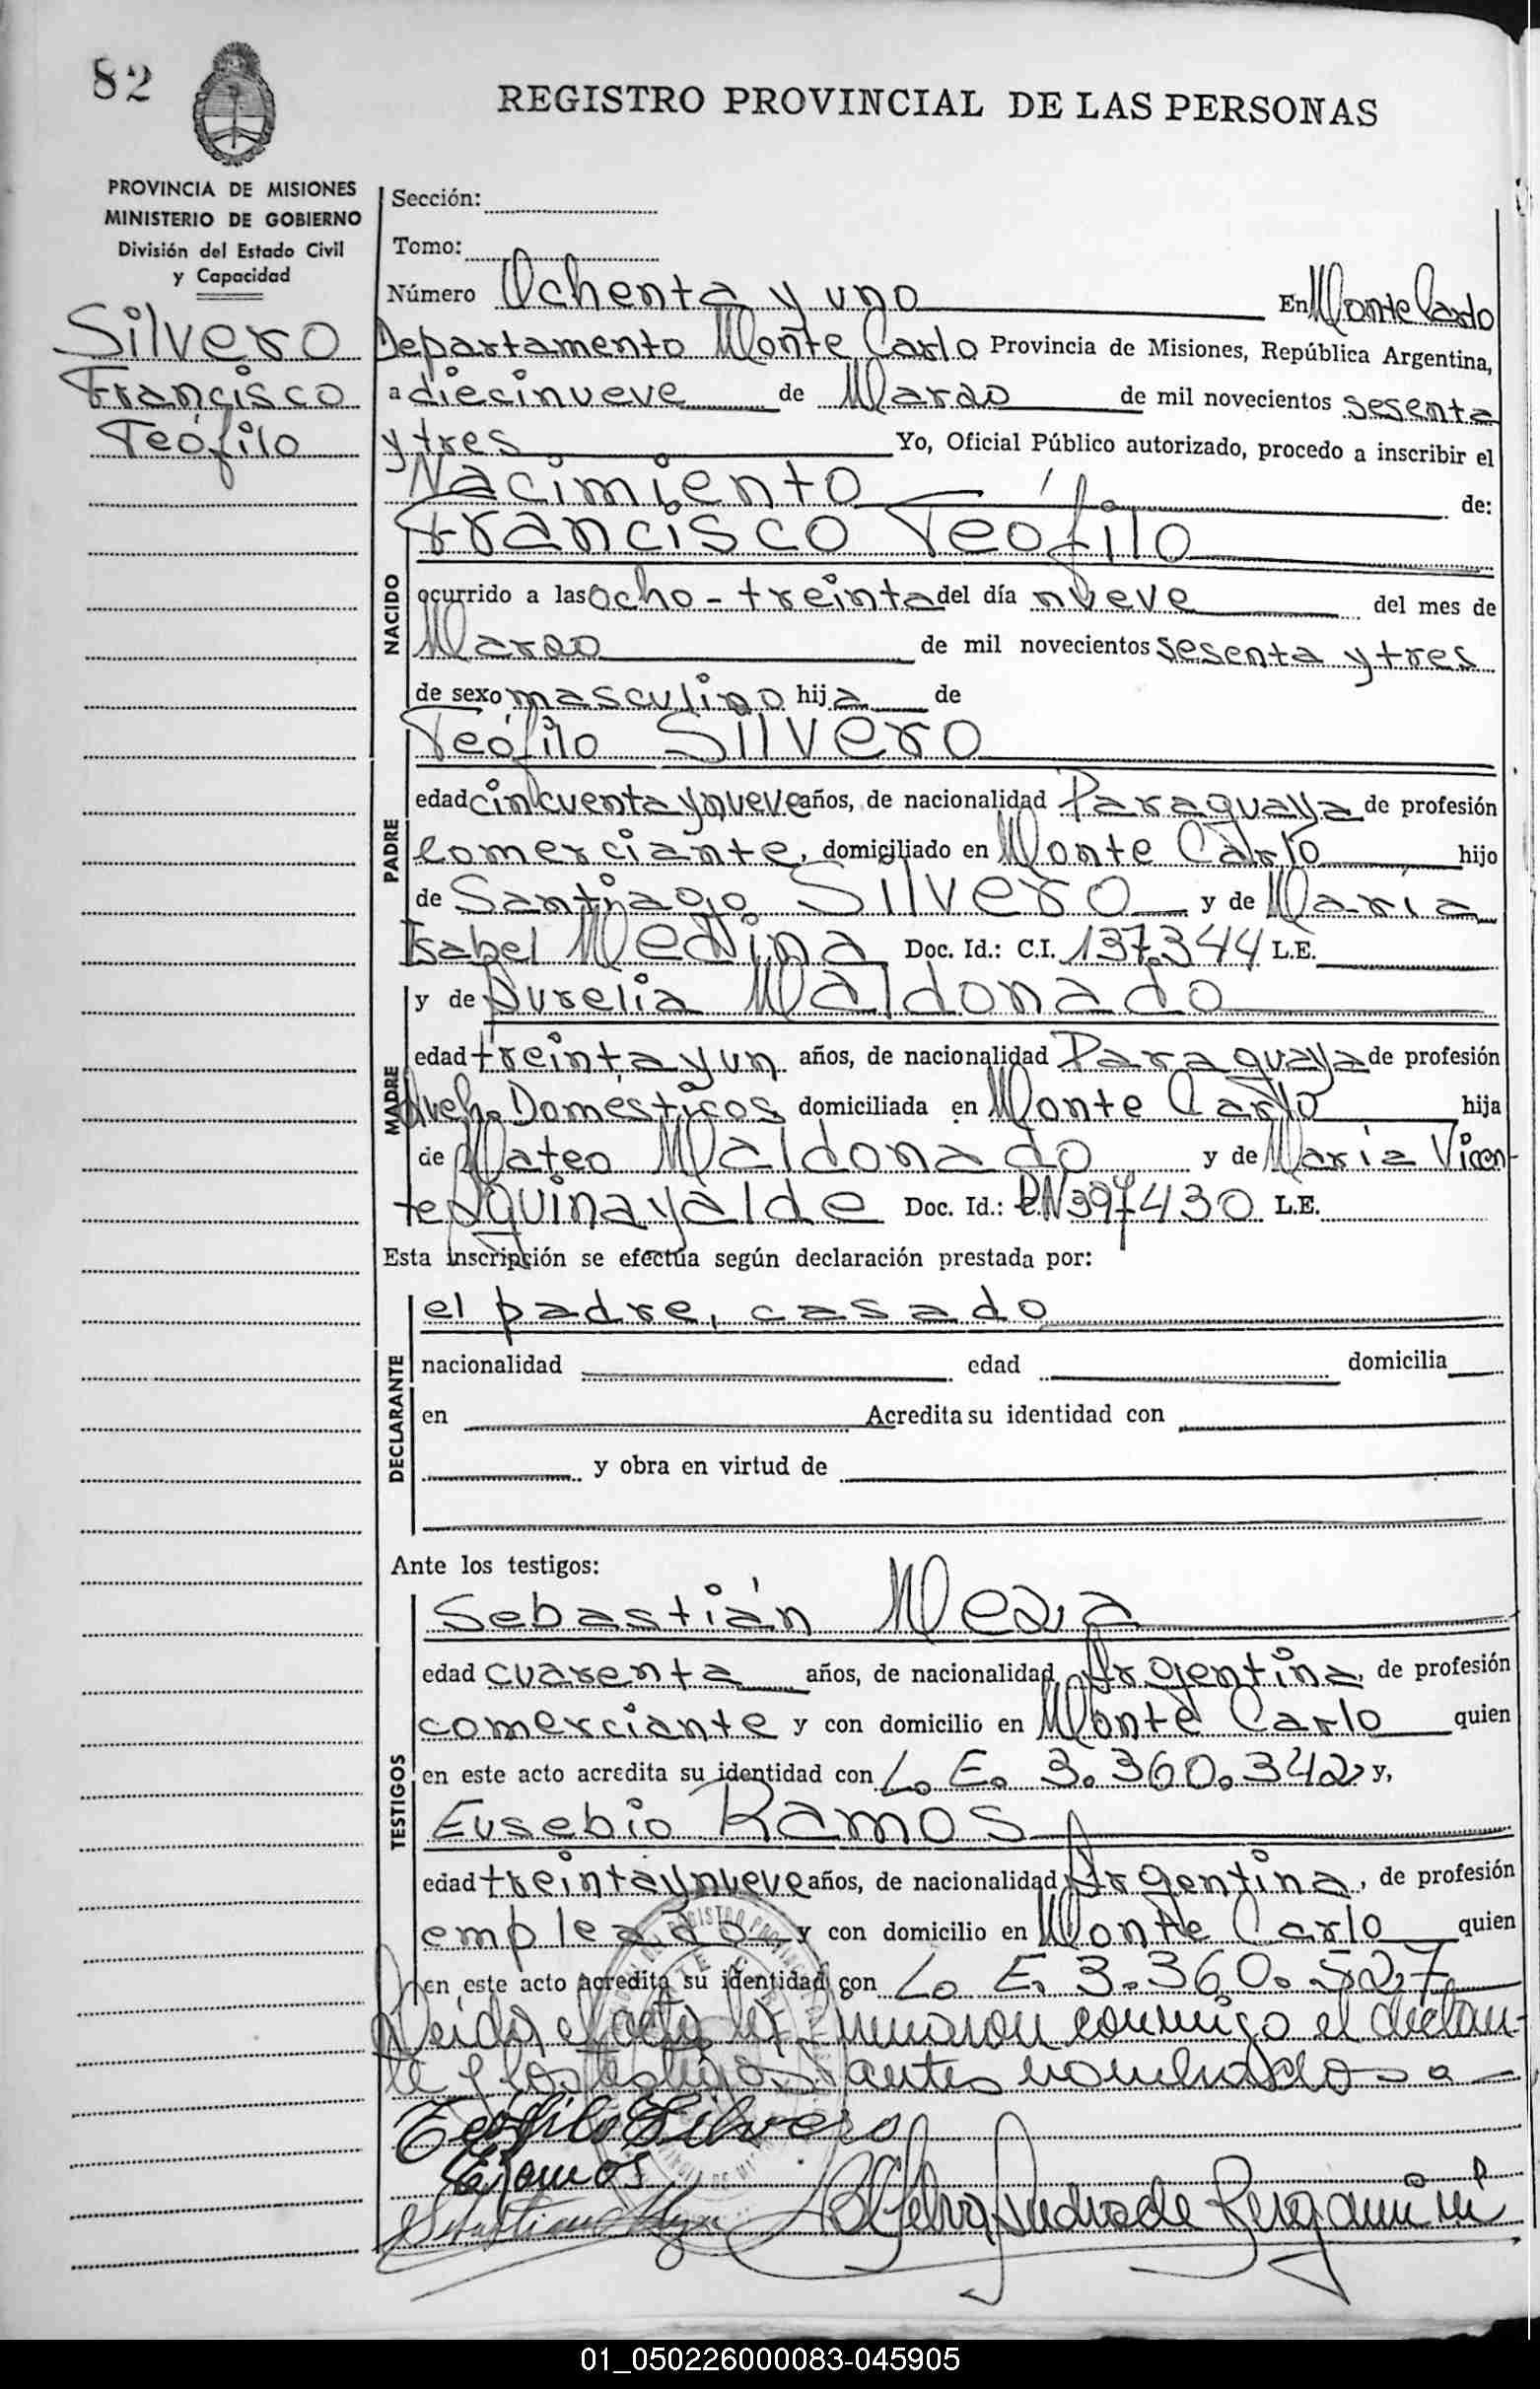 82
REGISTRO PROVINCIAL DE LAS PERSONAS
PROVINCIA DE MISIONES
MINISTERIO DE GOBIERNO
División del Estado Civil
y Capacidad
Silvero
Francisco
Teófilo
Sección:
Tomo:
Número Ochenta y uno En Monte Carlo
Departamento Monte Carlo Provincia de Misiones, República Argentina,
a diecinueve de Marzo de mil novecientos sesenta
y tres Yo, Oficial Público autorizado, procedo a inscribir el
Nacimiento de:
NACIDO
Francisco Teófilo
ocurrido a las ocho - treinta del día nueve del mes de
Marzo de mil novecientos sesenta y tres
de sexo masculino hija de
PADRE
Teófilo Silvero
edad cincuenta y nueve años, de nacionalidad Paraguaya de profesión
comerciante, domiciliado en Monte Carlo hijo
de Santiago Silvero y de María
Isabel Medina Doc. Id.: C.I. 137.344 L.E.
MADRE
y de Aurelia Maldonado
edad treinta y un años, de nacionalidad Paraguaya de profesión
Domésticos domiciliada en Monte Carlo hija
de Mateo Maldonado y de María Vicen-
te Aguinayalde Doc. Id.: 397430 L.E.
Esta inscripción se efectúa según declaración prestada por:
DECLARANTE
el padre, casado
nacionalidad edad domicilia
en Acredita su identidad con
y obra en virtud de
Ante los testigos:
TESTIGOS
Sebastián Meza
edad cuarenta años, de nacionalidad Argentina, de profesión
comerciante y con domicilio en Monte Carlo quien
en este acto acredita su identidad con L. E. 3.360.342 y,
Eusebio Ramos
edad treinta y nueve años, de nacionalidad Argentina, de profesión
empleado y con domicilio en Monte Carlo quien
en este acto acredita su identidad con L. E. 3.360.527
Leida el acta la firmaron conmigo el declaran-
te y los testigos antes nombrados
Teófilo Silvero
E Ramos
Sebastian Meza Andrade Bergamini
01_050226000083-045905